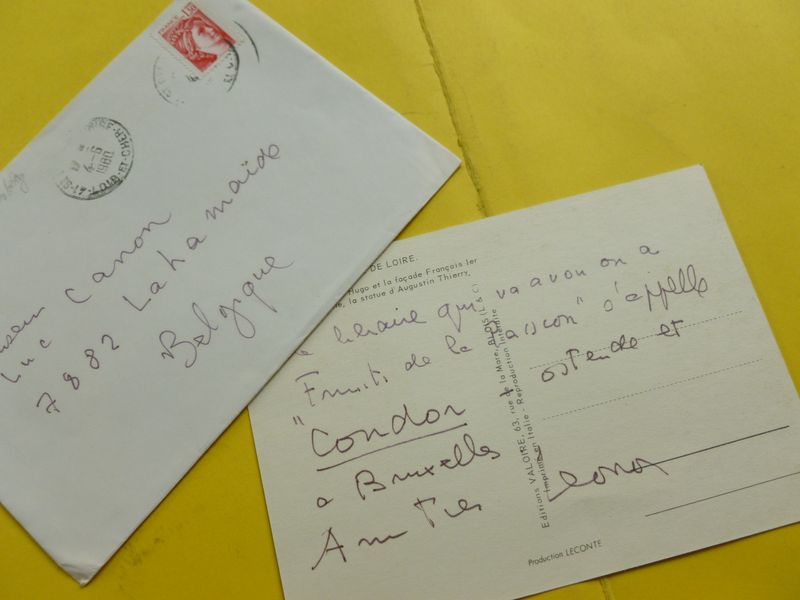 FRANCE
4-6
1980
LOIR-ET-CHER
Luc Canon
7882 La Hamaïde
Belgique
DE LOIRE.
Hugo et la façade François Ier
la statue d'Augustin Thierry,
libraire qui va avoir on a
"Fruits de la Passion" s'appelle
Condor ostende et
a Bruxelles
Amities Leonor
Editions VALOIRE, 63, rue de la Mare, BLOIS (L & C)
Imprimé en Italie - Reproduction Interdite
Production LECONTE